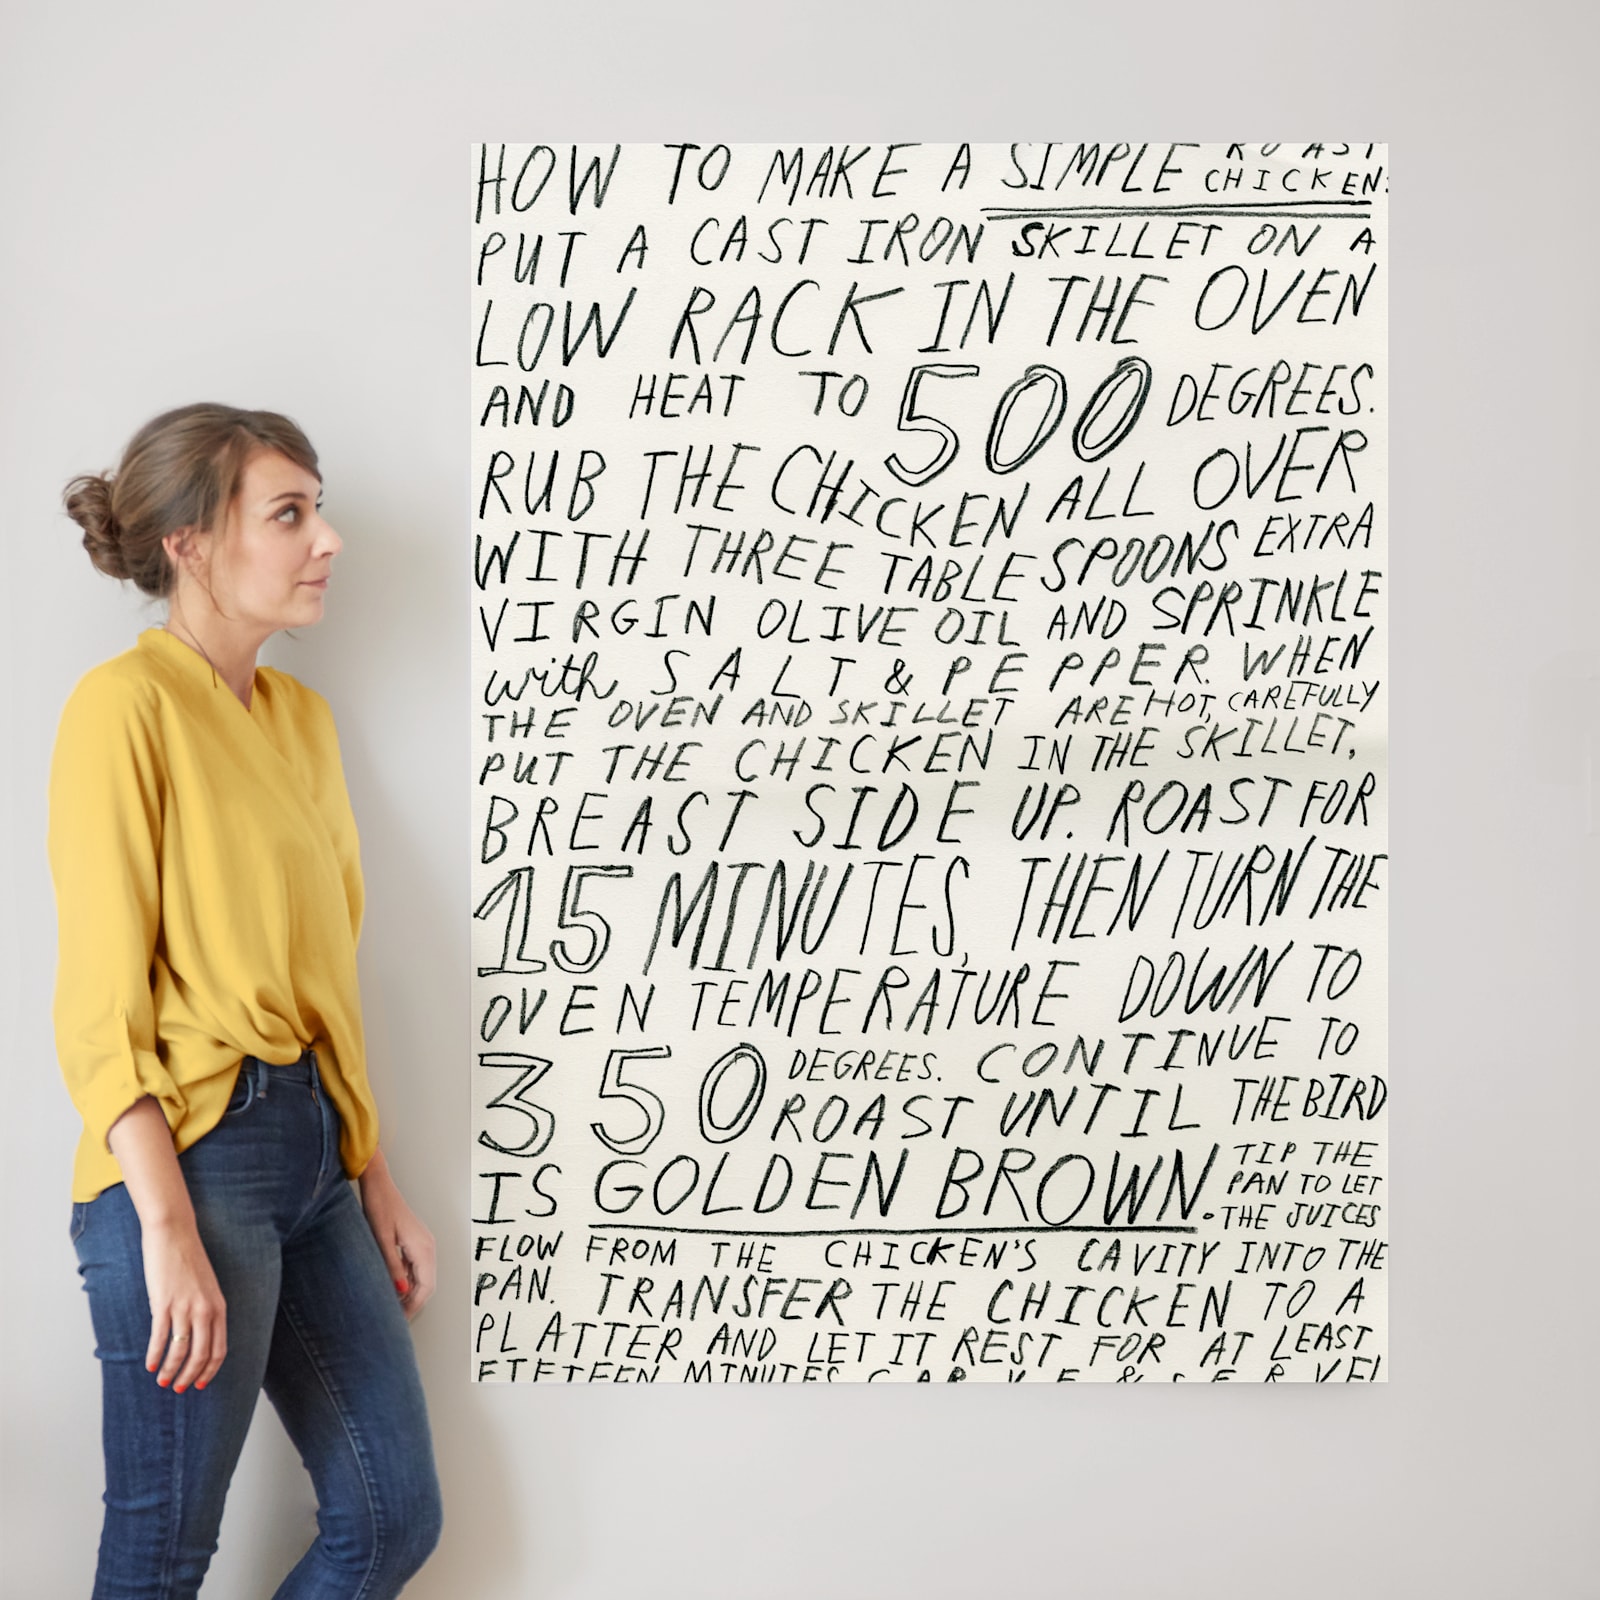 HOW TO MAKE A SIMPLE ROAST CHICKEN:
PUT A CAST IRON SKILLET ON A
LOW RACK IN THE OVEN
AND HEAT TO 500 DEGREES.
RUB THE CHICKEN ALL OVER
WITH THREE TABLESPOONS EXTRA
VIRGIN OLIVE OIL AND SPRINKLE
with SALT & PEPPER. WHEN
THE OVEN AND SKILLET ARE HOT, CAREFULLY
PUT THE CHICKEN IN THE SKILLET,
BREAST SIDE UP. ROAST FOR
15 MINUTES, THEN TURN THE
OVEN TEMPERATURE DOWN TO
350 DEGREES. CONTINUE TO
ROAST UNTIL THE BIRD
IS GOLDEN BROWN.
TIP THE
PAN TO LET
THE JUICES
FLOW FROM THE CHICKEN'S CAVITY INTO THE
PAN. TRANSFER THE CHICKEN TO A
PLATTER AND LET IT REST FOR AT LEAST
FIFTEEN MINUTES CARVE & SERVE!